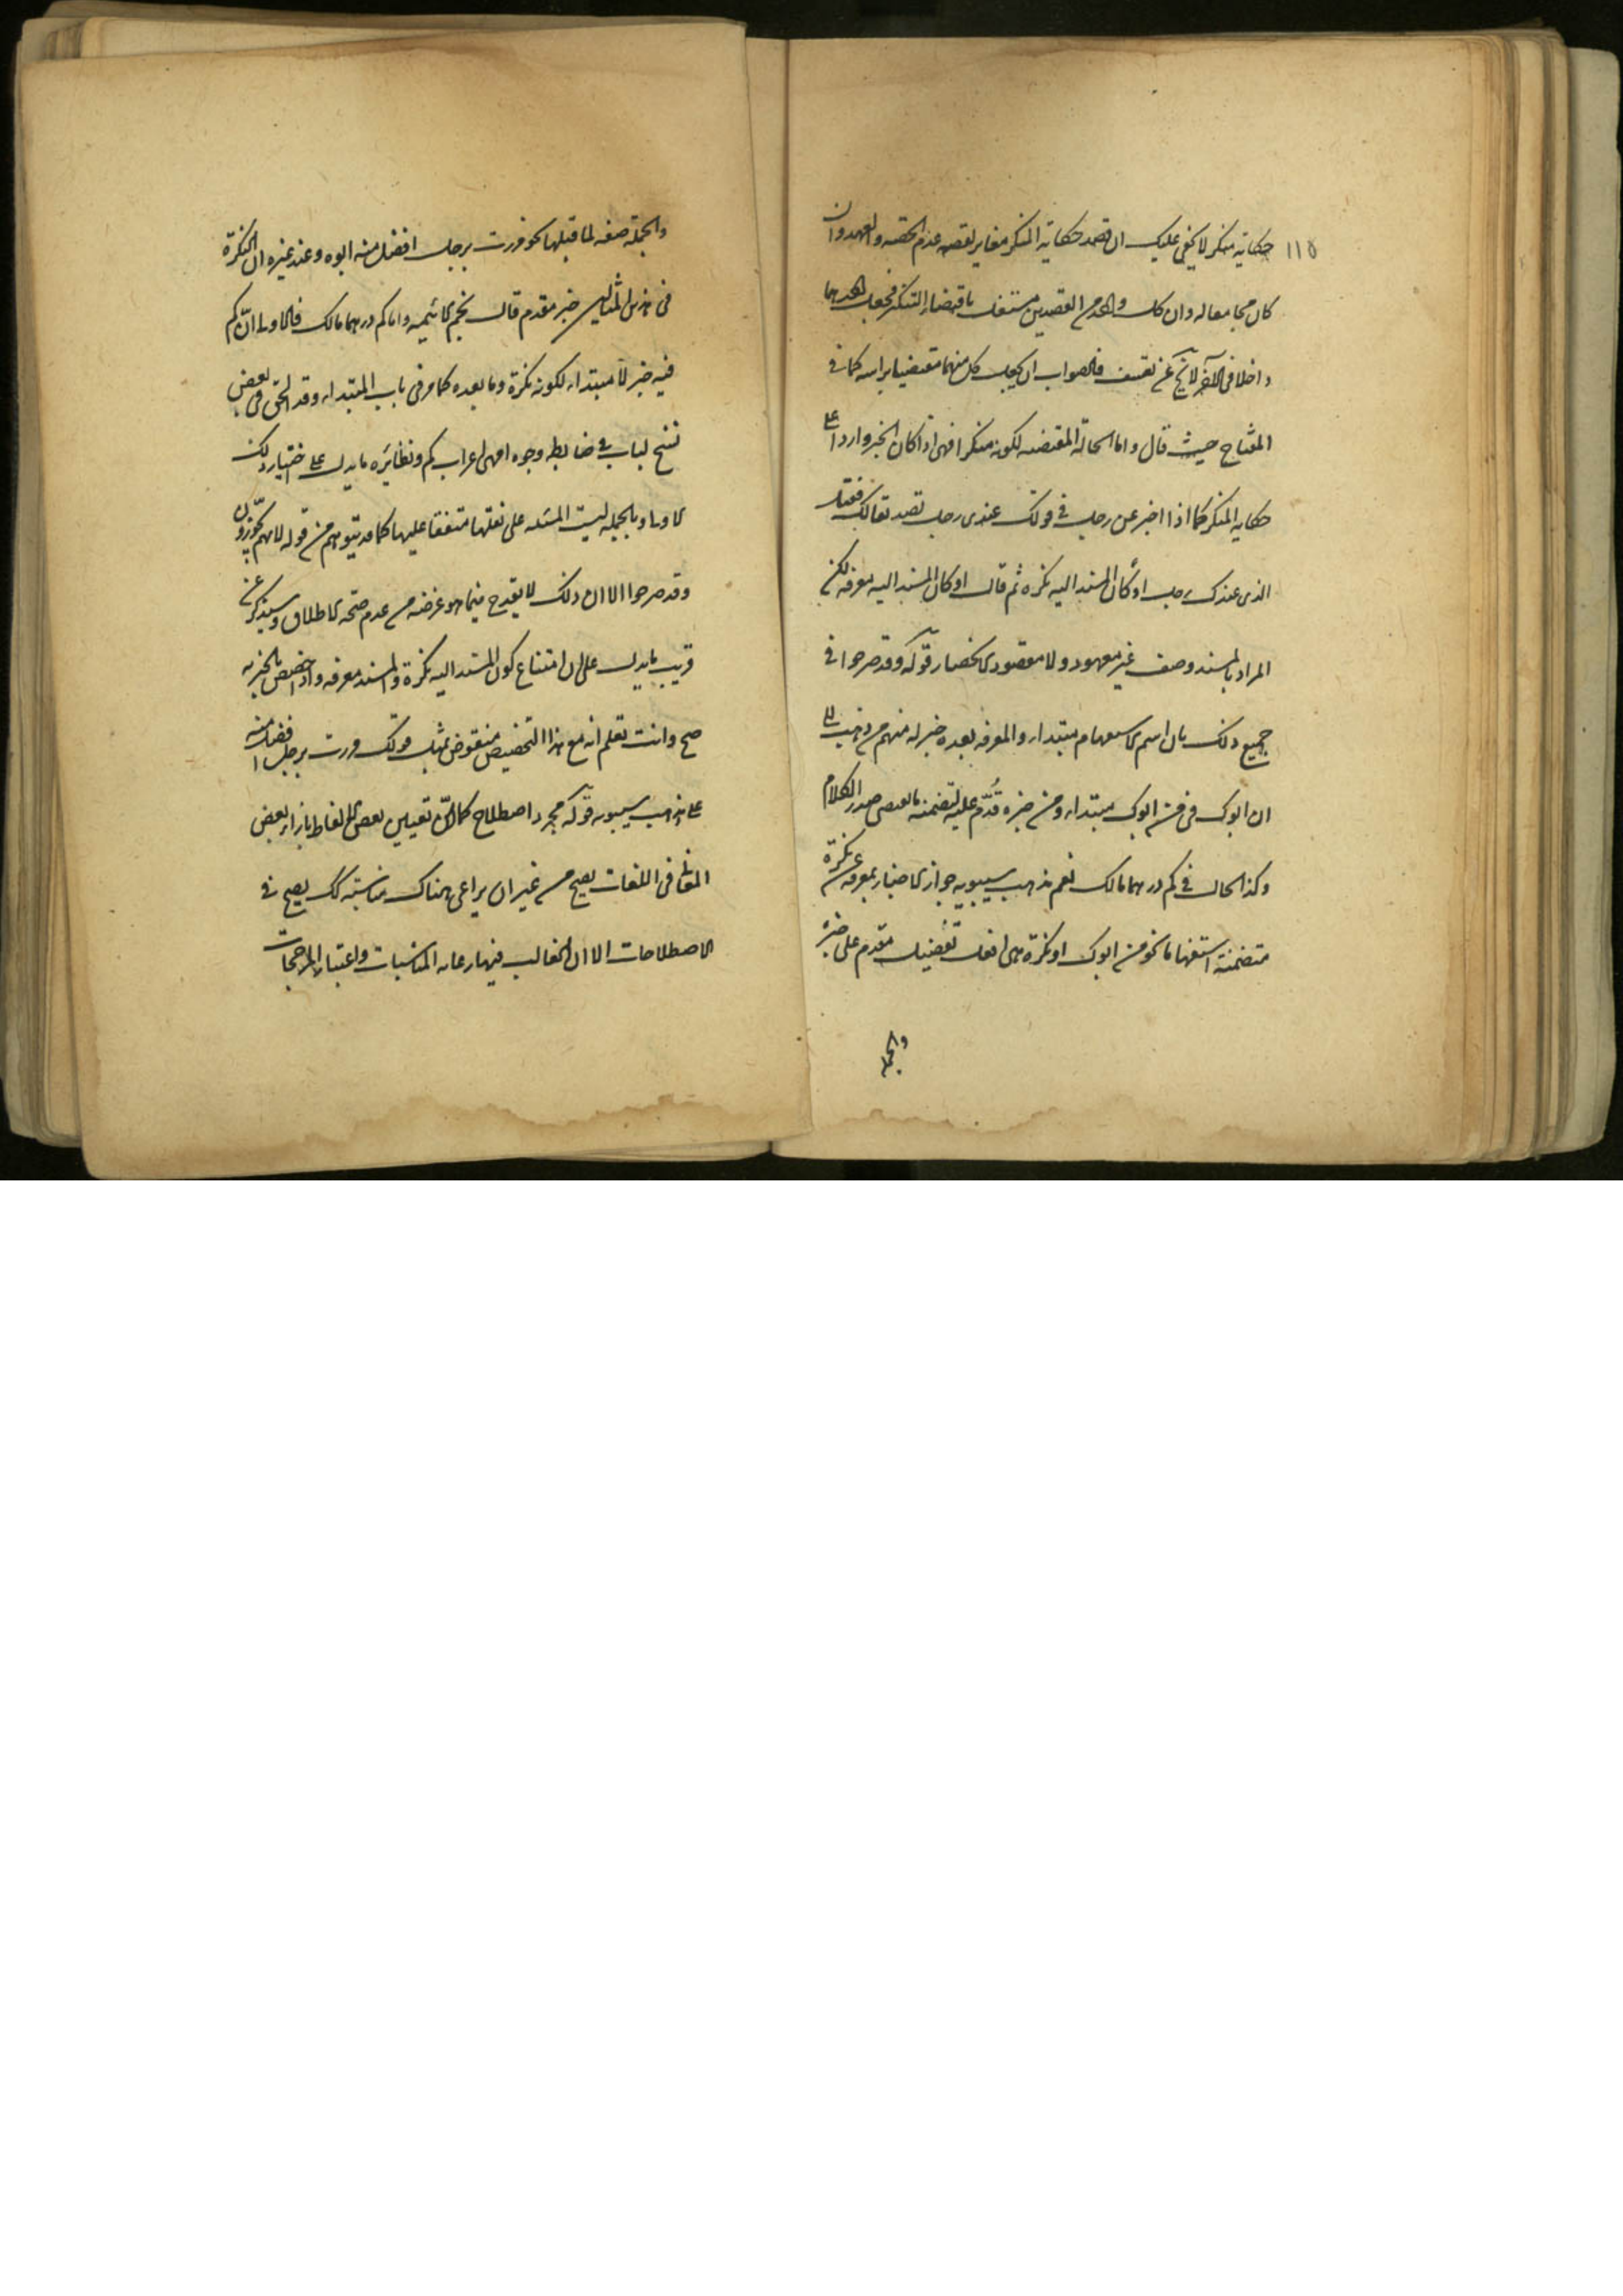 ١١٥ حكاية منكر لا يخفى عليك ان قصد حكاية المنكر مغاير لقصد عدم الحصر والعهد وان
كان مجامعا له وان كل واحد من القصدين مستقل باقتضاء التنكير فجعل احدهما
داخلا فى الآخر لا يخ عن تعسف فالصواب ان يجعل كل منهما مقتضيا براسه كما فى
المفتاح حيث قال واما الحالة المقتضية لكونه منكرا فهى اذا كان الخبر واردا على
حكاية المنكر كما اذا اخبر عن رجل فى قولك عندى رجل تصديقا لك فقيل
الذى عندك رجل او كان المسند اليه نكرة ثم قال او كان المسند اليه معرفة لكن
المراد بالمسند وصف غير معهود ولا مقصود الانحصار قوله وقد صرحوا فى
جميع ذلك بان اسم الاستفهام مبتداء والمعرفة بعده خبر له منهم من ذهب الى
ان ابوك فى من ابوك مبتداء ومن خبره قُدّم عليه لتضمنه ما يقتضى صدر الكلام
وكذا الحال فى كم درهما مالك نعم مذهب سيبويه جواز الاخبار بمعرفة عن نكرة
متضمنة استفهاما نحو من ابوك او نكرة هى افعل تفضيل مقدم على خبره
والجملة
والجملة صفة لما قبلها نحو مررت برجل افضل منه ابوه وعند غيره ان النكرة
فى هذين المثالين خبر مقدم قال نجم الائمة واما كم درهما مالك فالاولى ان كم
فيه خبر لا مبتداء لكونه نكرة وما بعده كما مر فى باب المبتداء وقد الحق فى بعض
نسخ لباب فى ضابطه وجوه اعراب كم ونظائره ما يدل على اختيار ذلك
الاولى وبالجملة ليست المسئلة على نقلها متفقا عليها كما قد يتوهم من قوله لانهم يجوزون
وقد صرحوا الا ان ذلك لا يقدح فيما هو غرضه من عدم صحة الاطلاق وسيذكر عن
قريب ما يدل على ان امتناع كون المسند اليه نكرة والمسند معرفة واذا خصص بالخبرية
صح وانت تعلم انه مع هذا التخصيص منقوض بمثل قولك مررت برجل افضل منه
على مذهب سيبويه قوله مجرد اصطلاح كما ان تعيين بعض الالفاظ بازاء بعض
المعانى فى اللغات يصح من غير ان يراعى هناك مناسبة كذلك يصح فى
الاصطلاحات الا ان الغالب فيها رعاية المناسبات واعتبار المرجحات